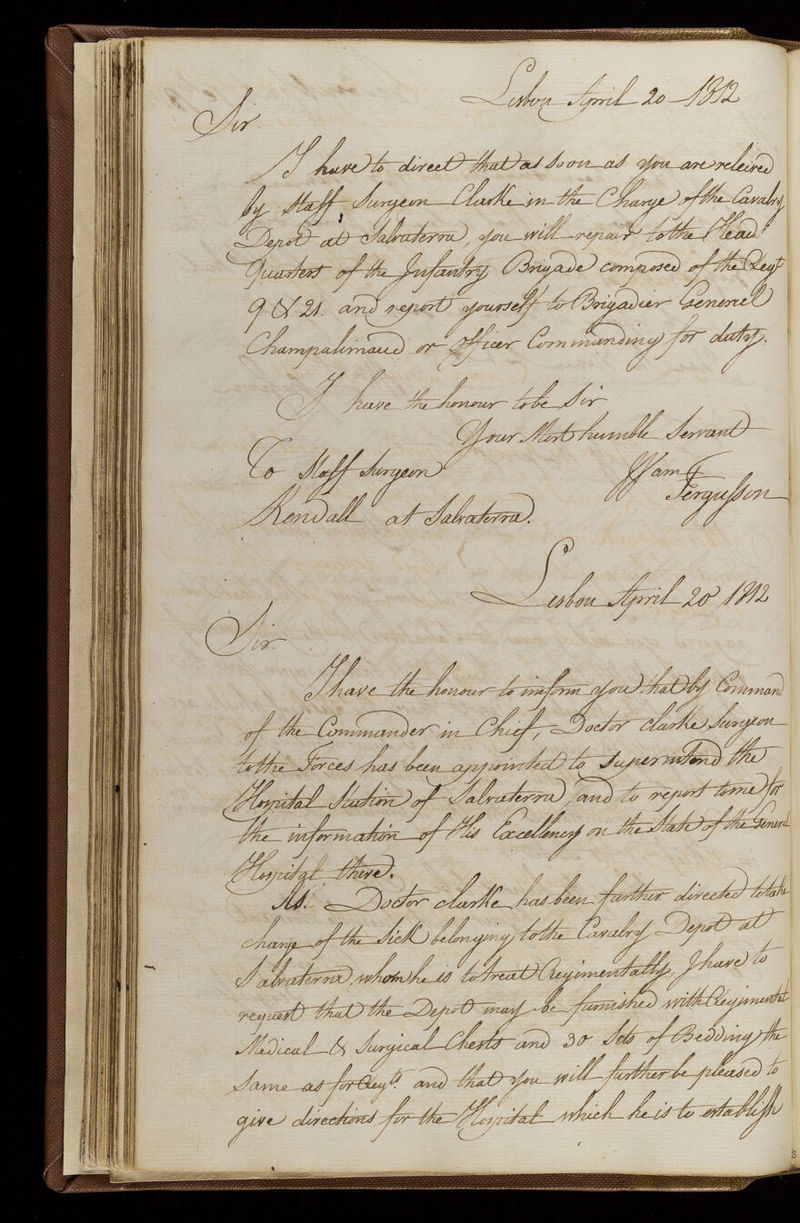 Lisbon April 20 1812
Sir.
I have to direct that as soon as you are releived
by Staff Surgeon Clarke in the Charge of the Cavalry
Depot at Salvaterra, you will repair to the Head
Quarters of the Infantry Brigade composed of the Regt
9 & 21. and report yourself to Brigadier General
Champalimaud or Officer Commanding for duty.
I have the honour to be Sir
Your Most humble Servant
To Staff Surgeon Wam
Fergusson
Kendall at Salvaterra.
Lisbon April 20 1812
Sir
I have the honour to inform you that by Command
of the Commander in Chief, Doctor Clarke Surgeon
to the Forces has been appointed to superintend the
Hospital Station of Salvaterra, and to report to me for
the information of His Excellency on the State of the General
Hospital there.
As. Doctor Clarke has been further directed to take
charge of the Sick belonging to the Cavalry Depot at
Salvaterra, whom he is to treat Regimentally, I have to
request that the Depot may be furnished with Regimental
Medical & Surgical Chests and 30 Sets of Bedding the
Same as for Regts. and that you will further be pleased to
give directions for the Hospital which he is to establish
3